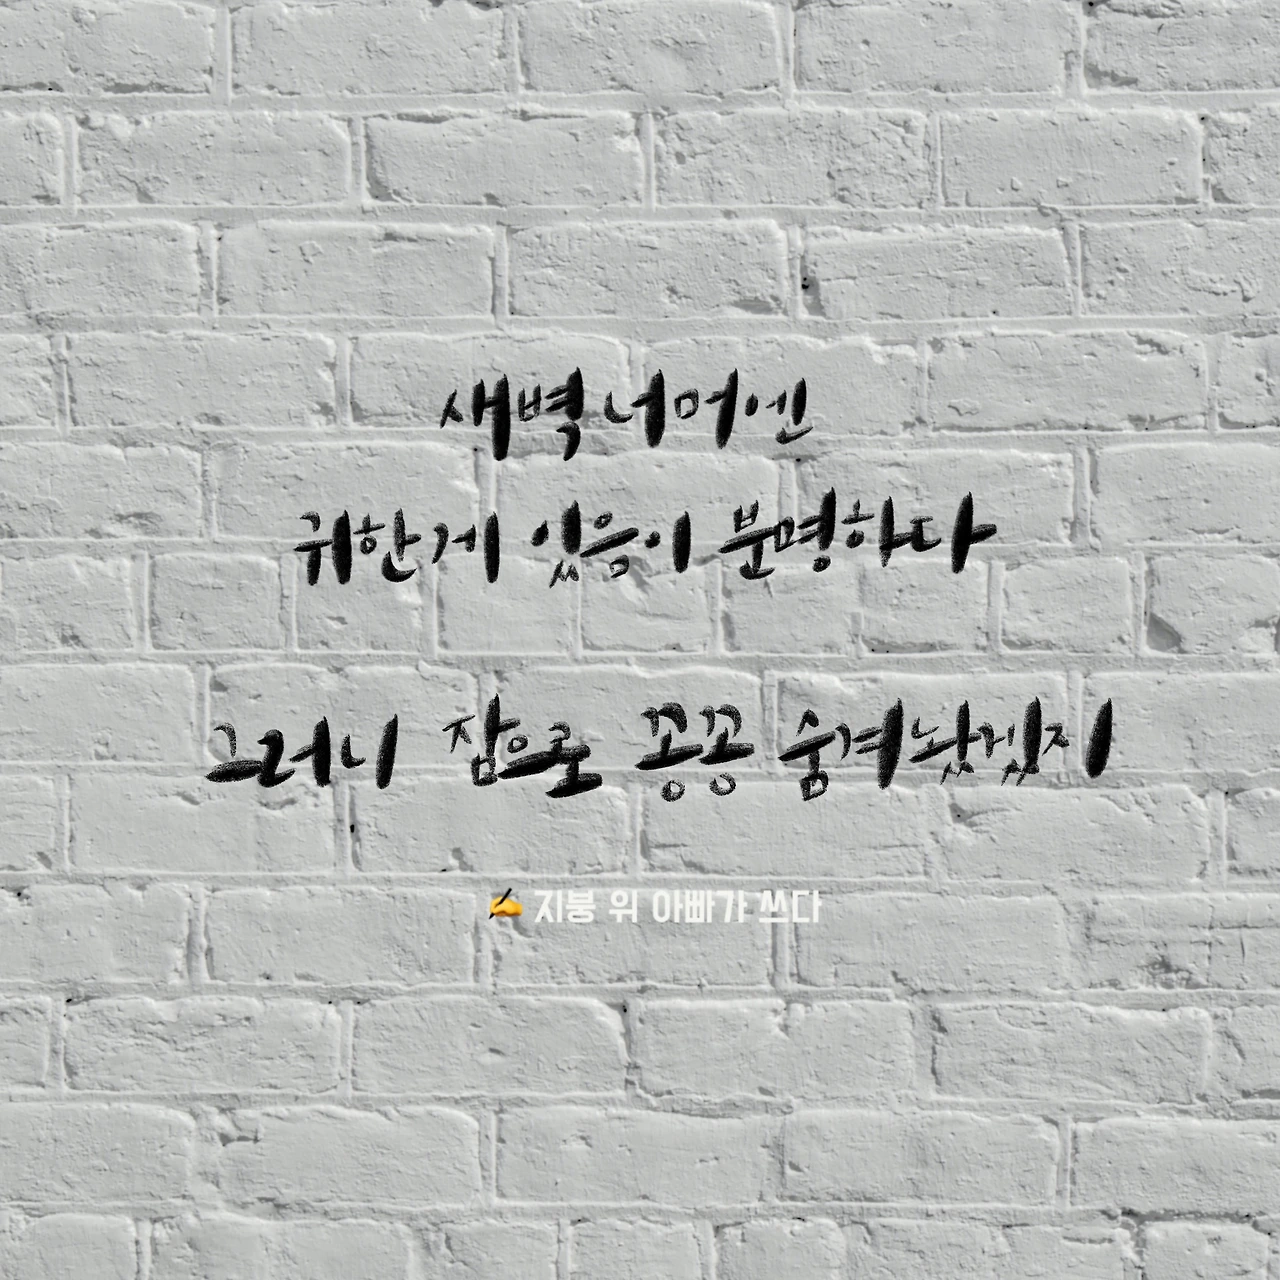 새벽 너머엔
귀한 게 있음이 분명하다
그러니 잠으로 꽁꽁 숨겨놨겠지
✍️ 지붕 위 아빠가 쓰다